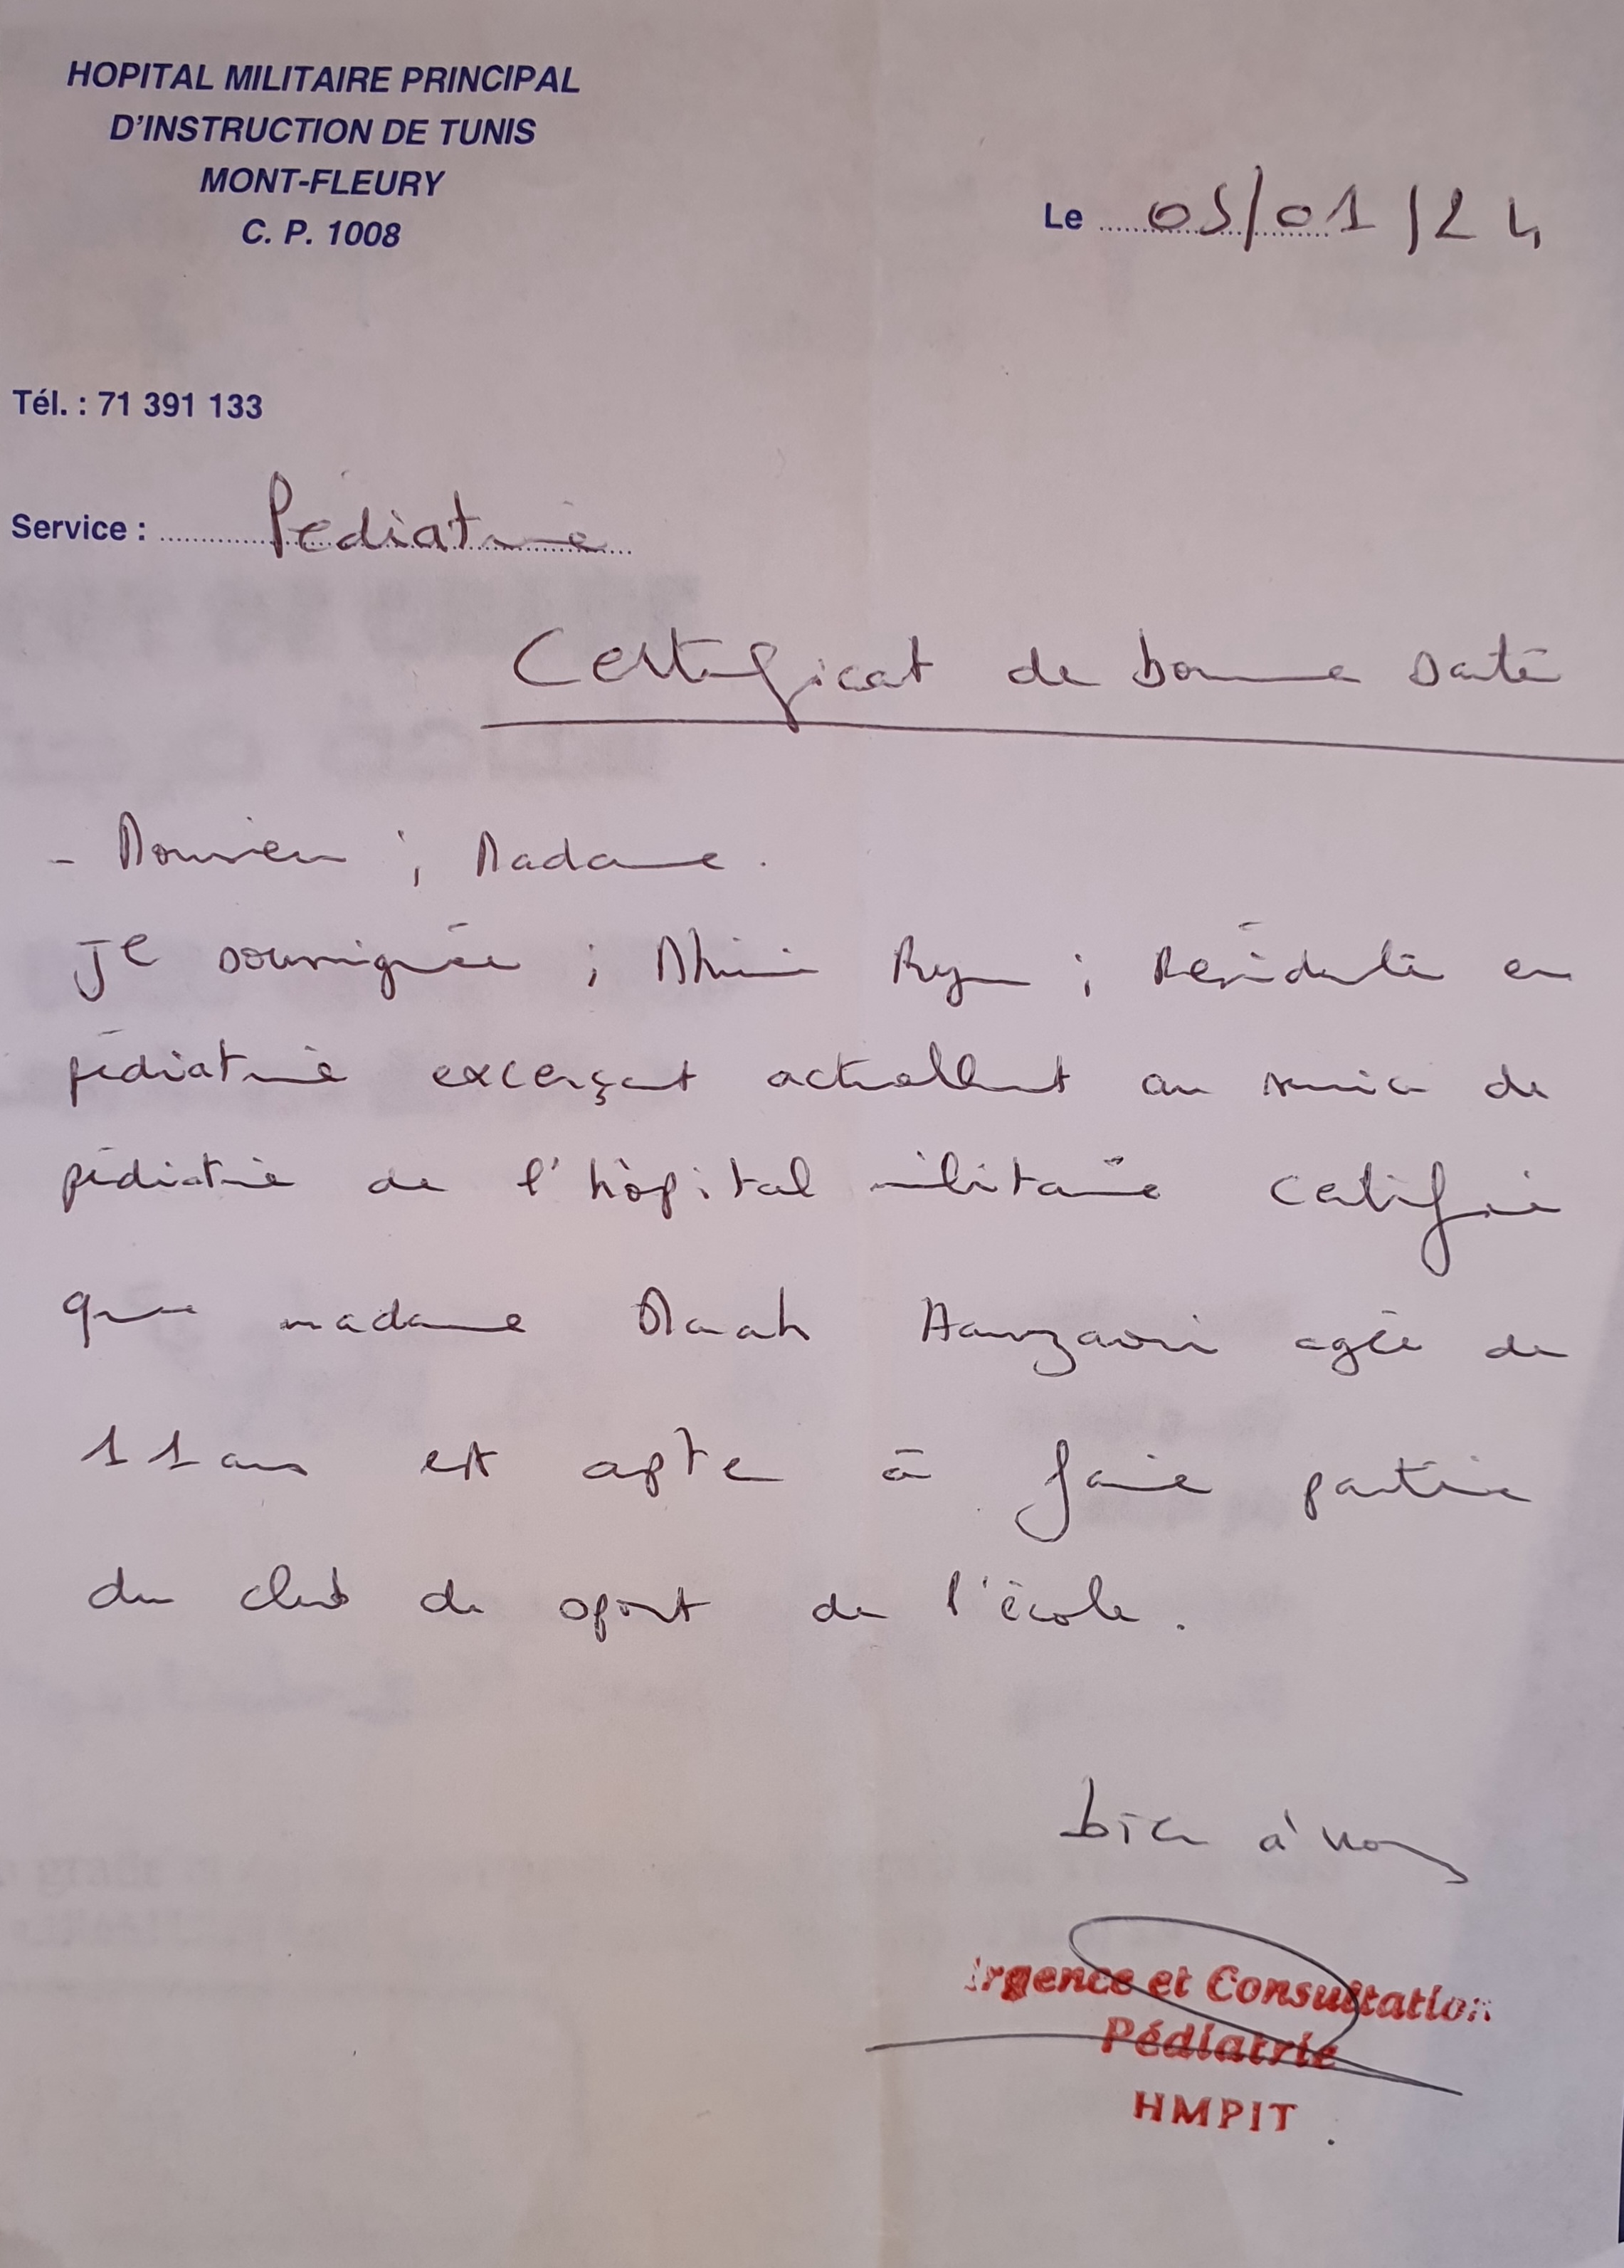 HOPITAL MILITAIRE PRINCIPAL
D'INSTRUCTION DE TUNIS
MONT-FLEURY
C. P. 1008
Le 05/01/24
Tél. : 71 391 133
Service : Pédiatrie
Certificat de bonne santé
- Monsieur ; Madame.
Je soussignée ; ; Résidente en
pédiatrie excerçant actuellement au service de
pédiatrie de l'hôpital militaire certifie
que madame Marah Hamzaoui agée de
11 ans est apte à faire partie
du club de sport de l'école.
bien à vous
Urgence et Consultation
Pédiatrie
HMPIT